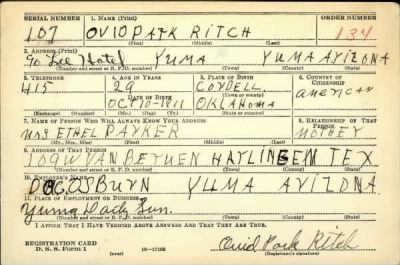 SERIAL NUMBER 1. NAME (Print) ORDER NUMBER
107 OVID PARK RITCH 134
(First) (Middle) (Last)
2. ADDRESS (Print)
% Lee Hotel YUMA YUMA ARIZONA
(Number and street or R. F. D. number) (Town) (County) (State)
3. TELEPHONE 4. AGE IN YEARS 5. PLACE OF BIRTH 6. COUNTRY OF CITIZENSHIP
415 29 CORDELL American
DATE OF BIRTH (Town or county)
OCT 10-1911 OKLAHOMA
(Exchange) (Number) (Mo.) (Day) (Yr.) (State or country)
7. NAME OF PERSON WHO WILL ALWAYS KNOW YOUR ADDRESS 8. RELATIONSHIP OF THAT PERSON
MRS ETHEL PARKER MOTHER
(Mr., Mrs., Miss) (First) (Middle) (Last)
9. ADDRESS OF THAT PERSON
109 W VAN BEUREN HARLINGEN TEX
(Number and street or R. F. D. number) (Town) (County) (State)
10. EMPLOYER'S NAME
DOC OSBURN YUMA ARIZONA
11. PLACE OF EMPLOYMENT OR BUSINESS
Yuma Daily Sun.
(Number and street or R. F. D. number) (Town) (County) (State)
I AFFIRM THAT I HAVE VERIFIED ABOVE ANSWERS AND THAT THEY ARE TRUE.
REGISTRATION CARD
D. S. S. Form 1 (over) 16-17105 Ovid Park Ritch
(Registrant's signature)